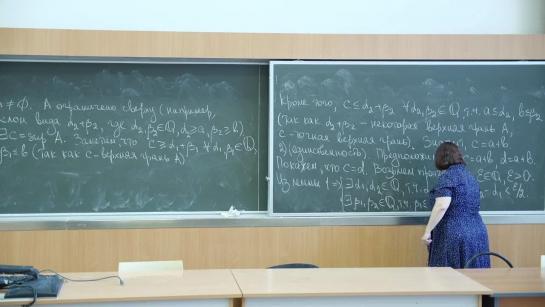 ≠ ∅. A ограничено сверху (например,
вида α₂+β₂, где α₂,β₂∈ℚ, α₂≥a, β₂≥b)
∃ c = sup A. Заметим, что c ≥ α₁+β₁ ∀ α₁,β₁∈ℚ
β₁≤b (так как c - верхняя грань A)
Кроме того, c ≤ α₂+β₂ ∀ α₂,β₂∈ℚ, т.ч. a≤α₂, b≤β₂
(так как α₂+β₂ - некоторая верхняя грань A,
c - точная верхняя грань). c = a+b
2) (единственность). a+b, d=a+b.
Покажем, что c=d. Возьмем ε∈ℚ, ε>0.
Из леммы 1 ⇒ ∃ α₁,α₂∈ℚ, т.ч. - α₁ < ε/2.
∃ β₁,β₂∈ℚ, т.ч. β₁≤